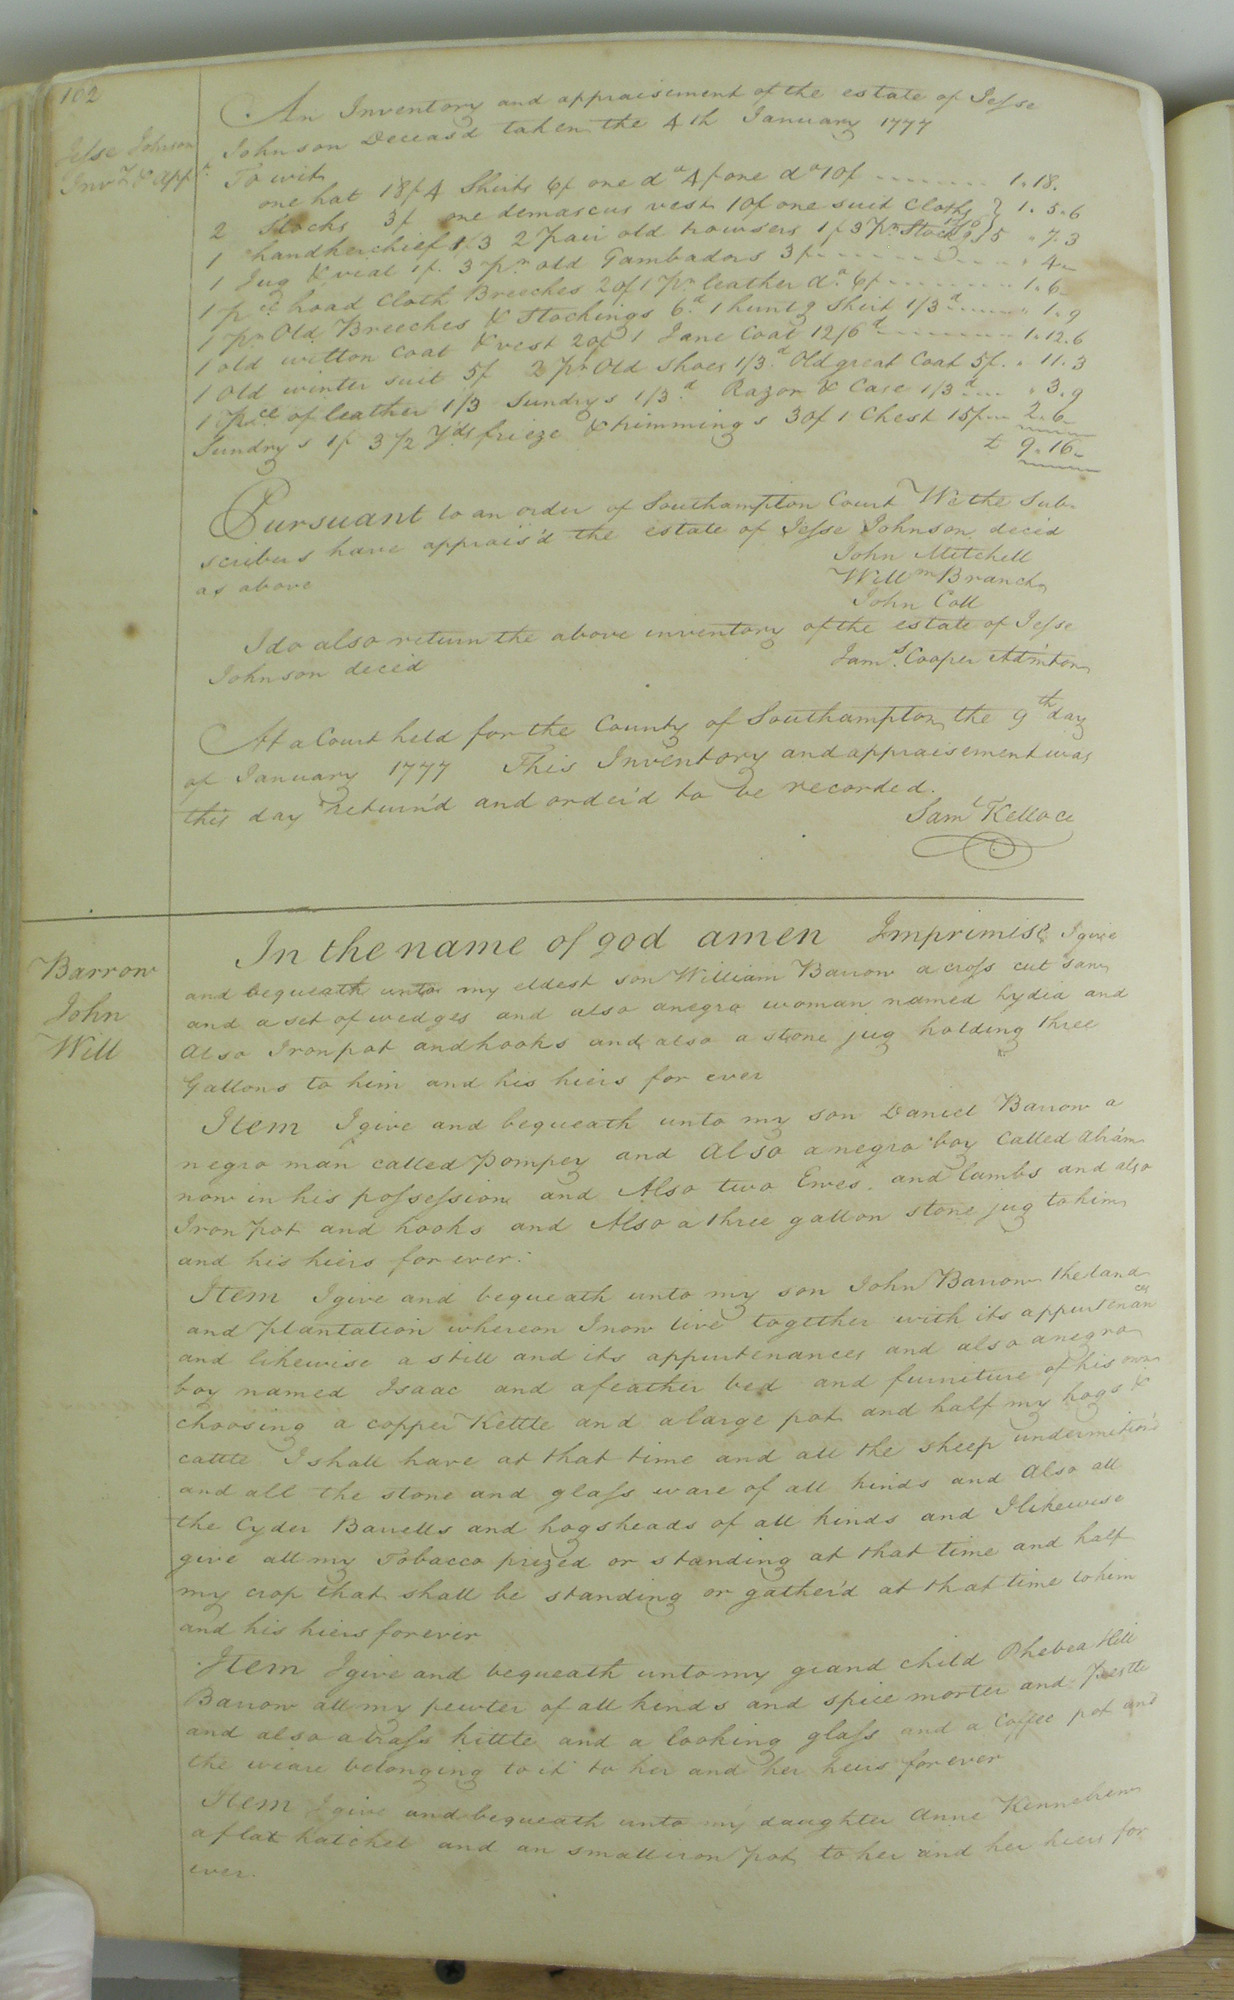 102
Jesse Johnson
Inv.y & App.r
An Inventory and appraisement of the estate of Jesse
Johnson Deceas'd taken the 4th January 1777
To wit
one hat 18/ 4 Shirts 6/ one do 4/ one do 10/ 1. 18.
2 Stocks 3/ one demascus vest 10/ one suit Cloths } 1. 5. 6
1 handkerchief 1.3 2 pair old trowsers 1/ 3 pr Stock.gs 5 . 7. 3
1 Jug & vial 1/. 3 pr old Gambadors 3/ . 4
1 pce broad Cloth Breeches 20/ 1 pr leather do. 6/ 1. 6
1 pr Old Breeches & Stockings 6d 1 hunt g Shirt 1/3d . 1. 9
1 old wilton coat & vest 20/ 1 Jane Coat 12/6d 1. 12. 6
1 Old winter suit 5/ 2 pr Old Shoes 1/3d Old great Coat 5/. . 11. 3
1 pce of leather 1/3 Sundrys 1/3d Razor & Case 1/3d . 3. 9
Sundrys 1/ 3 1/2 Yds frieze & trimmings 30/ 1 Chest 15/ 2. 6
£ 9. 16
Pursuant to an order of Southampton Court We the Sub-
scribers have apprais'd the estate of Jesse Johnson dec'd
as above
John Mitchell
Willm Branch
John Coll
I do also return the above inventory of the estate of Jesse
Johnson dec'd
Jams. Cooper Adm'tor
At a Court held for the County of Southampton the 9th day
of January 1777 This Inventory and appraisement was
this day return'd and order'd to be recorded.
Saml Kello Cl
Barrow
John
Will
In the name of god amen Imprimise I give
and bequeath unto my eldest son William Barrow a cross cut saw
and a set of wedges and also a negro woman named Lydia and
Also Iron pot and hooks and also a stone jug holding three
Gallons to him and his hiers for ever
Item I give and bequeath unto my son Daniel Barrow a
negro man called Pompey and Also a negro boy called Abram
now in his possession and Also two Ewes and lambs and also
Iron pot and hooks and Also a three gallon stone jug to him
and his hiers for ever.
Item I give and bequeath unto my son John Barrow the land
and plantation whereon I now live together with its appurtenances
and likewise a still and its appurtenances and also a negro
boy named Isaac and a feather bed and furniture of his own
choosing a copper Kettle and a large pot and half my hogs &
cattle I shall have at that time and all the sheep undermition'd
and all the stone and glass ware of all kinds and Also all
the Cyder Barrells and hogsheads of all kinds and I likewise
give all my Tobacco prized or standing at that time and half
my crop that shall be standing or gather'd at that time to him
and his hiers forever
Item I give and bequeath unto my grand child Phebea Hill
Barrow all my pewter of all kinds and spice morter and pestle
and also a brass kittle and a looking glass and a Coffee pot and
the weare belonging to it to her and her heirs for ever
Item I give and bequeath unto my daughter Anne Kennebrew
a flat hatchel and an small iron pot to her and her hiers for
ever.